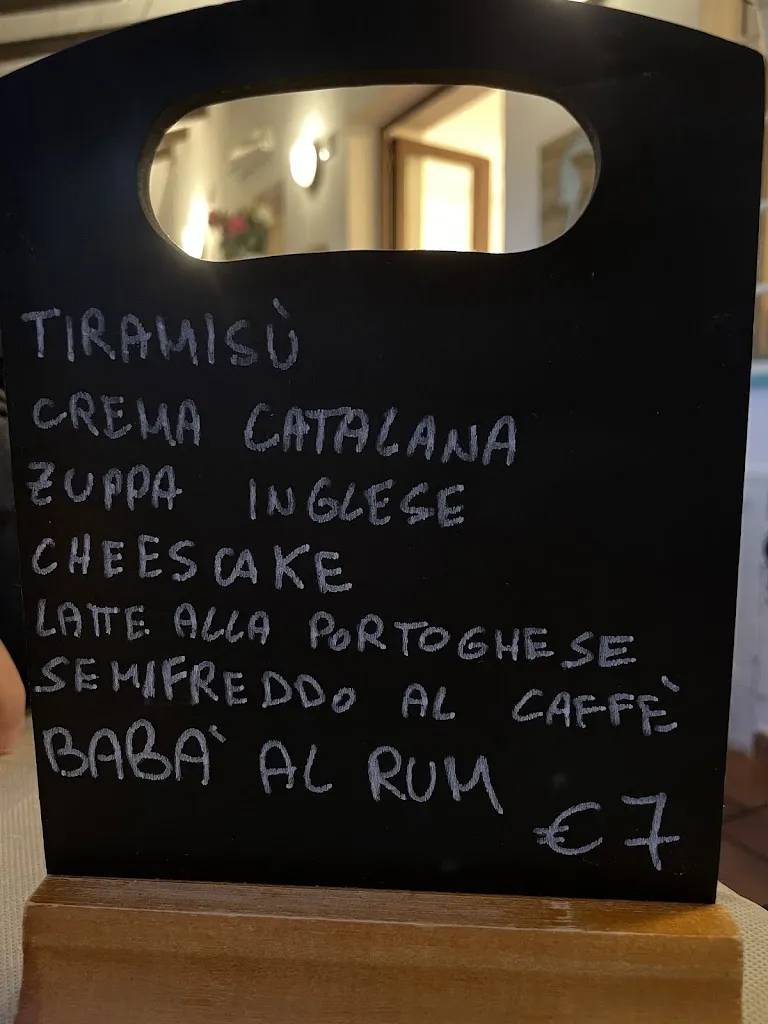 TIRAMISÙ
CREMA CATALANA
ZUPPA INGLESE
CHEESCAKE
LATTE ALLA PORTOGHESE
SEMIFREDDO AL CAFFÈ
BABÀ AL RUM
€7